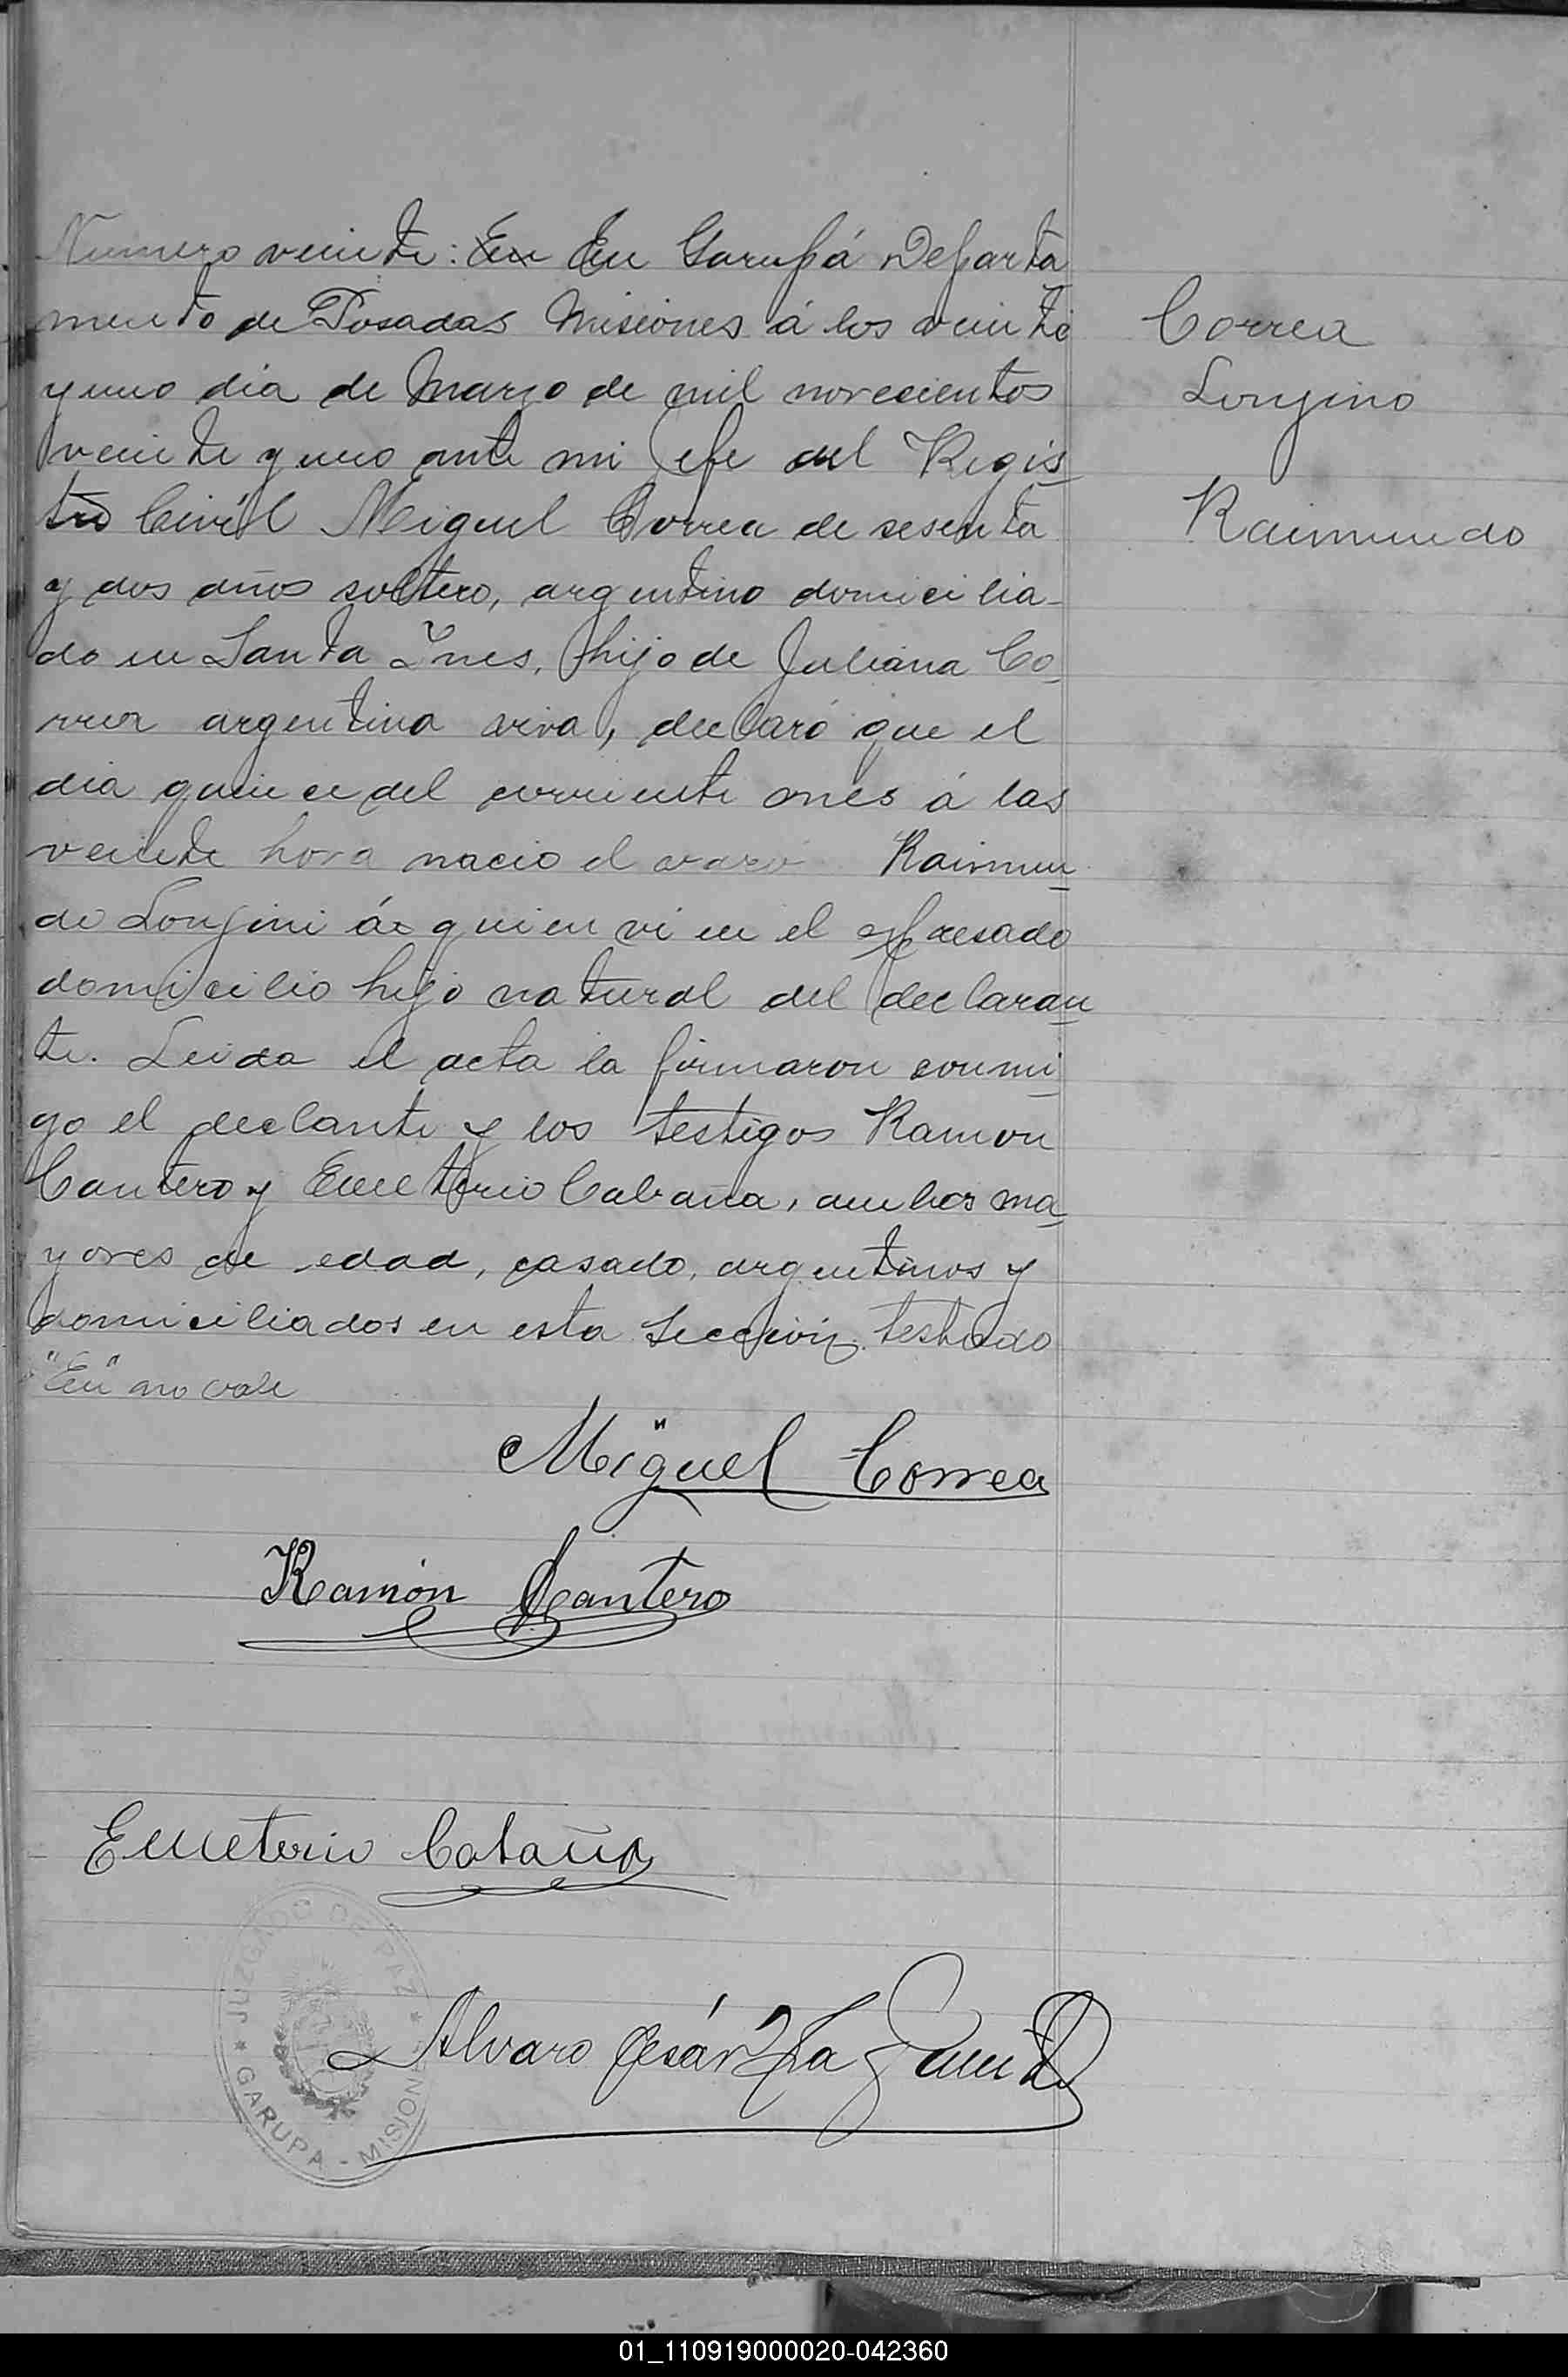 Numero veinte: En En Garupá Departa
mento de Posadas Misiones á los veinte
y uno dia de Marzo de mil novecientos
veinte y uno ante mi Jefe del Regis-
tro Civil Miguel Correa de sesenta
y dos años soltero, argentino domicilia-
do en Santa Ines, hijo de Juliana Co-
rrea argentina viva, declaró que el
dia quince del corriente mes á las
veinte hora nacio el varo Raimun-
do Longini á quien vi en el expresado
domicilio hijo natural del declaran-
te. Leida el acta la firmaron conmi-
go el declante y los testigos Ramon
Cantero y Emeterio Cabaña, ambos ma-
yores de edad, casado, argentinos y
domiciliados en esta Sección. testado
"En" no vale
Correa
Longino
Raimundo
Miguel Correa
Ramón Cantero
Emeterio Cabaña
Alvaro César
JUZGADO DE PAZ
GARUPA - MISIONES
01_110919000020-042360